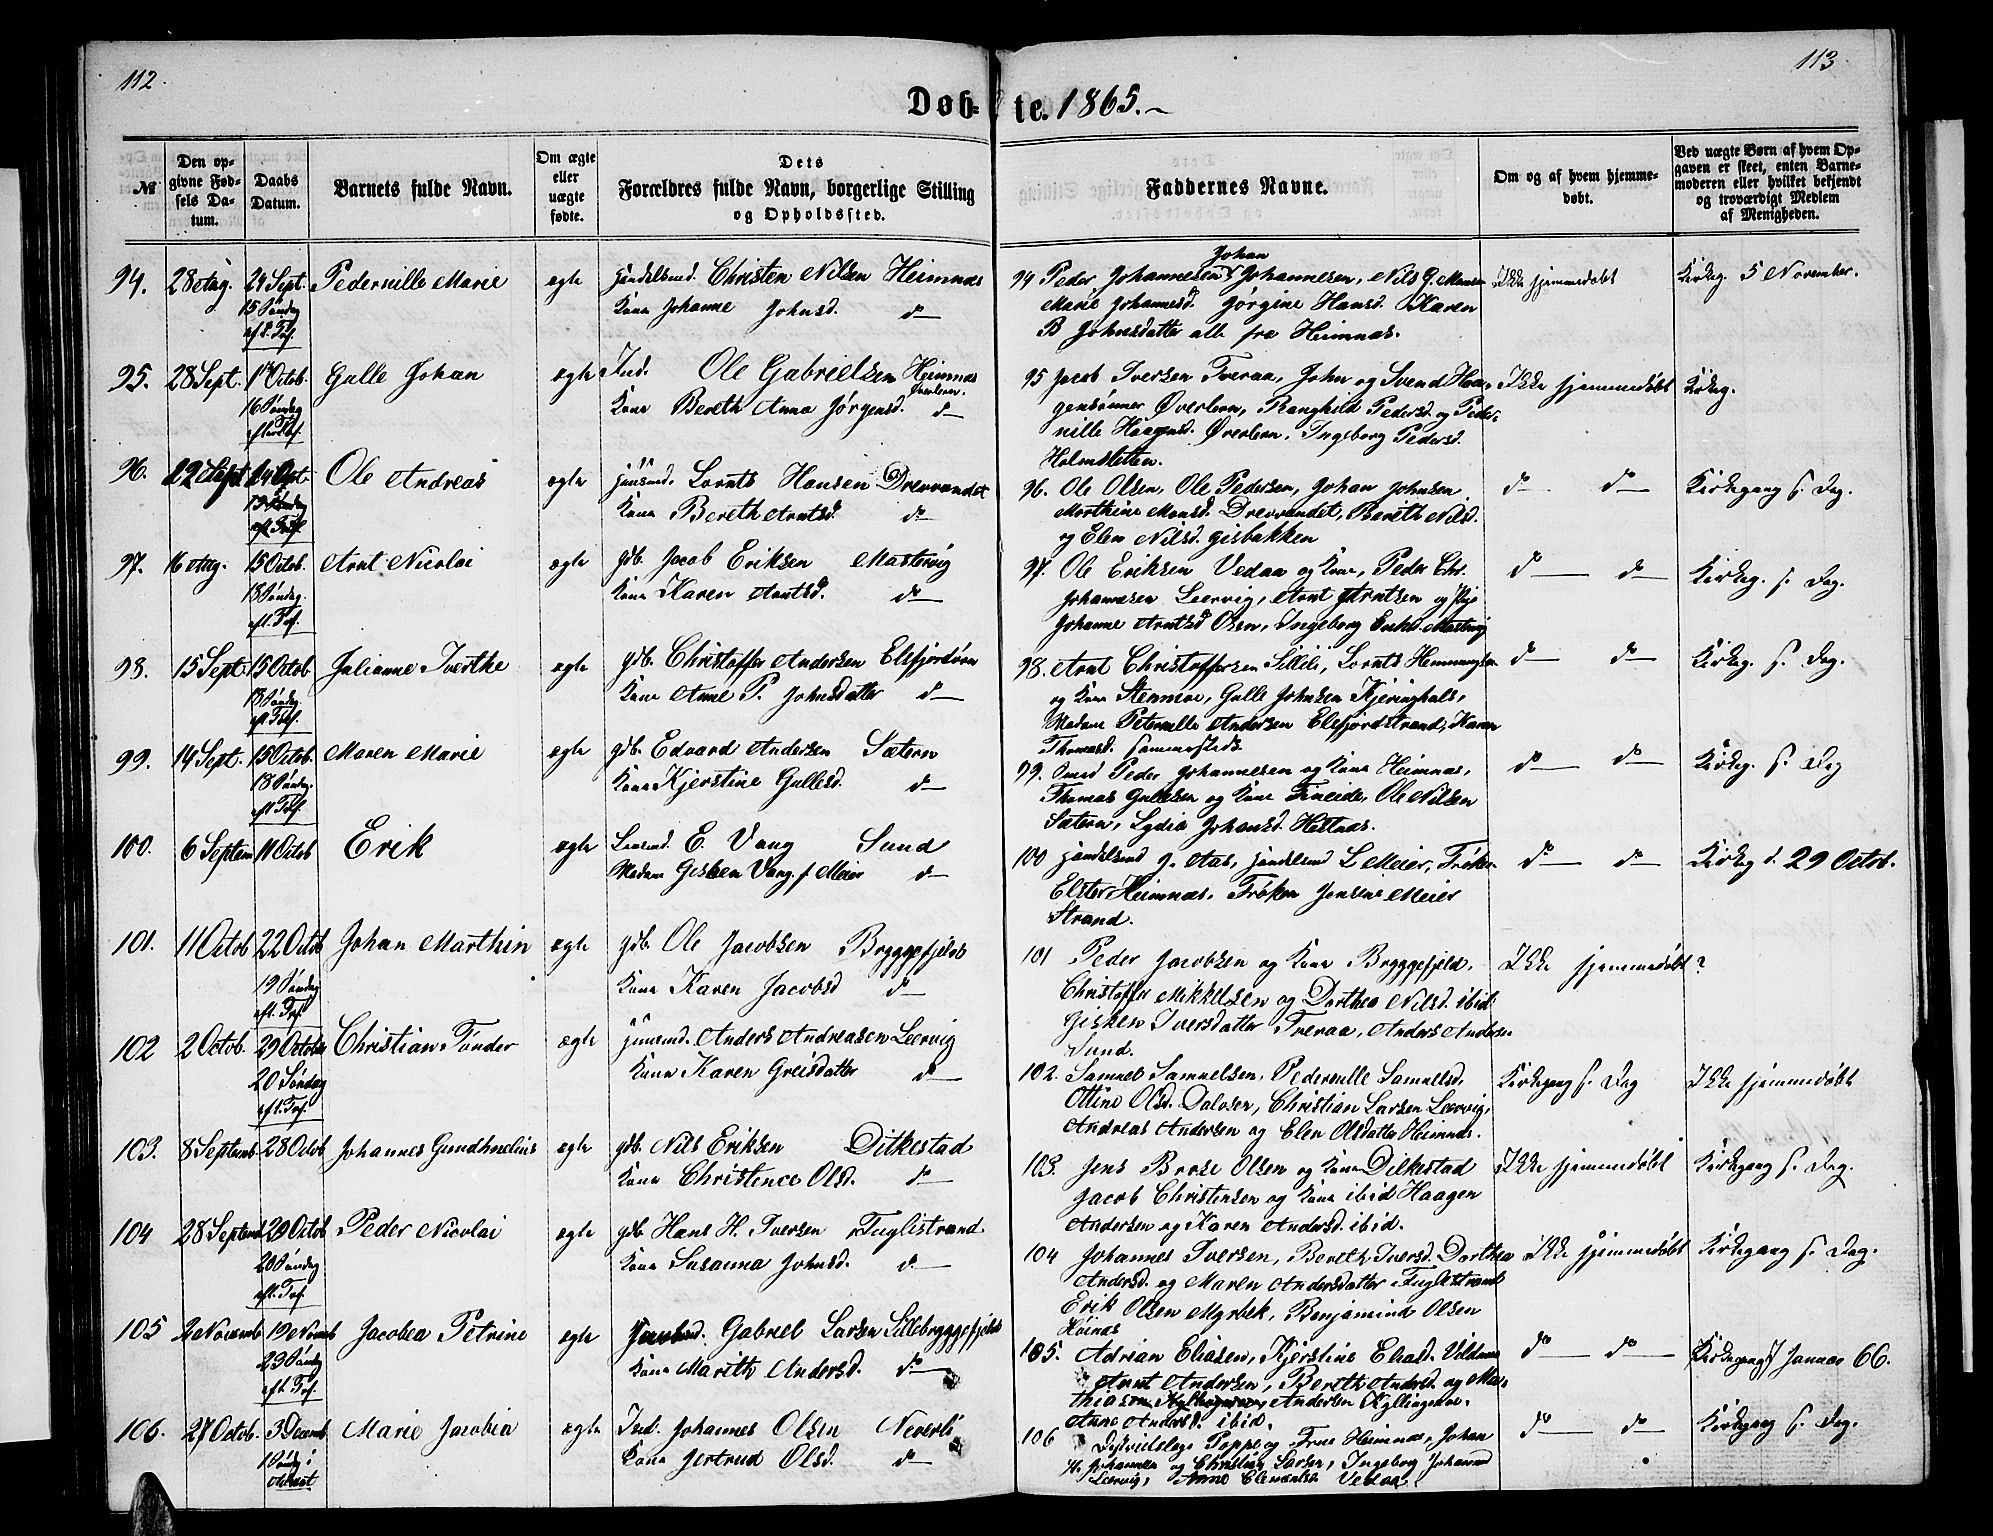 112.
113.
Døbte. 1865.
№
Den opgivne Fødsels Datum.
Daabs Datum.
Barnets fulde Navn.
Om ægte eller uægte fødte.
Dets
Forældres fulde Navn, borgerlige Stilling
og Opholdssted.
Faddernes Navne.
Om og af hvem hjemmedøbt.
Ved uægte Børn af hvem Opgaven er skeet, enten Barnemoderen eller hvilket bekjendt og troværdigt Medlem af Menigheden.
94. 28 Aug. 24 Sept. Pedernille Marie ægte Christen Nilsen Heimnæs
15 Søndag Kone Johanne Johnsd. do
Johan
94 Peder Johannesen Johannesen, Nils G. Monsen Ikke hjemmedøbt Kirkeg. 5 November.
Marie Johannesd. Jørgine Hansd. Karen
B Johnsdatter alle fra Heimnæs.
95. 28 Sept. 1 Octob. Gulle Johan ægte Ind. Ole Gabrielsen Heimnæs
16 Søndag Kone Bereth Anna Jørgensd. do
95 Jacob Iversen Tveraa, John og Svend Haagensønner Øverleen, Ranghild Pedersd. og Pedernille Haagensd. Øverleen, Ingeborg Pedersd. Ikke hjemmedøbt Kirkeg.
Holmsletten.
96. 22 24 Ole Andreas ægte Huusmd. Lornts Hansen Drevvandet
Kone Bereth Arntsd. do
96. Ole Olsen, Ole Pedersen, Johan Johnsen do do Kirkegang s. Dag.
Marthine Monsd. Drevvandet, Bereth Nilsd.
og Elen Nilsd. Gisbakken
97. 16 Aug. 15 Octob. Arnt Nicolai ægte gdb. Jacob Eriksen Mastervig
18 Søndag. Kone Karen Arntsd. do
eft. Tref.
97. Ole Eriksen Vedaa og Kone, Peder Chr. do do Kirkeg. s. Dag.
Johannesen Leervig, Arnt Arntsen og Pige
Johanne Arntsd Olsen, Ingeborg Eriksd. Mastervig
98. 15 Sept. 15 Octob. Julianne Iverthe ægte gdb. Christoffer Andersen Elsfjordøren
18 Søndag. Kone Anne P. Johnsdatter do
eft. Tref.
98. Arnt Christoffersen Sillili, Lornts Hemmingsen do do Kirkeg. s. Dag.
og Kone Stenmoe, Gulle Johnsen Kjeringhals,
Madame Peternille Andersen Elsfjordstrand, Karen
Thomasd. sammesteds.
99. 14 Sept. 15 Octob. Maren Marie ægte gdb. Edvard Andersen Sætern
18 Søndag. Kone Kjerstine Gullesd. do
eft. Tref.
99. Peder Johannesen og Kone Heimnæs, do do Kirkeg. s. Dag
Thomas Gullesen og Kone Fineide, Ole Nilsen
Sætern, Lydia Johansd. Hestnæs.
100. 6 Septem 11 Octob Erik ægte E. Vang Sund
Madame Gisken Vang f. Meier do
100 Handelsmd J. Aas, Handelsmd L Meier, Frøken do do Kirkeg d. 29 Octob.
Elster Heimnæs. Frøken Jensine Meier
Strand.
101. 11 Octob 22 Octob Johan Marthin ægte gdb. Ole Jacobsen Bryggefjeld
19 Søndag Kone Karen Jacobsd do
eft. Tref.
101 Peder Jacobsen og Kone Bryggefjeld, Ikke hjemmedøbt?
Christoffer Mikkelsen og Dorthea Nilsd. ibid:
Gisken Iversdatter Tveraa, Anders Andersen
Sund.
102 2 Octob. 29 October Christian Tønder ægte Huusmd. Anders Andreasen Leervig
20 Søndag Kone Karen Greisdatter do
eft. Tref.
102. Samuel Samuelsen, Pedernille Samuelsd, Kirkegang s. Dag Ikke hjemmedøbt
Ottine Olsd. Dalosen, Christian Larsen Leervig,
Andreas Andersen og Elen Olsdatter Heimnæs.
103. 8 Septemb 28 Octob Johannes Gundhnelius ægte gdb. Nils Eriksen Dilkestad
Kone Christence Olsd. do
103. Jens Brose Olsen og Kone Dilkestad Ikke hjemmedøbt Kirkegang s. Dag.
Jacob Christensen og Kone ibid Haagen
Andersen og Karen Andersd. ibid.
104 28 Septemb 29 Octob Peder Nicolai ægte gdb Hans H. Iversen Fuglestrand
20 Søndag Kone Susanna Johnsd. do
eft. Tref.
104 Johannes Iversen, Bereth Iversd. Dorthea Ikke hjemmedøbt Kirkegang s. Dag.
Andersd. og Maren Andersdatter Fuglestrand
Erik Olsen Myrbek, Benjamin Olsen
Høinæs
105 2 Novemb 19 Novemb Jacobea Petrine ægte Huusmd. Gabriel Larsen Sillebryggefjeld
23 Søndag Kone Marith Andersd. do
eft. Tref.
105. Adrian Eliasen, Kjerstine Eliasd. do do Kirkegang 7 Januar 66.
Arnt Andersen, Bereth Andersd. og Mathias Andersen Kyllingmoe.
Anne Andersd. ibid.
106. 27 Octob. 3 Decemb Marie Jacobea ægte Ind. Johannes Olsen Neverli
1 Søndag i Kone Gertrud Olsd. do
Advent
106 Districtslæge Poppe og Frue Heimnæs, Johan do do Kirkegang s. Dag.
H. Johannesen og Christian Larsen, Ingeborg Johansd
Leervig, Anne Clemetsen Vedaa.